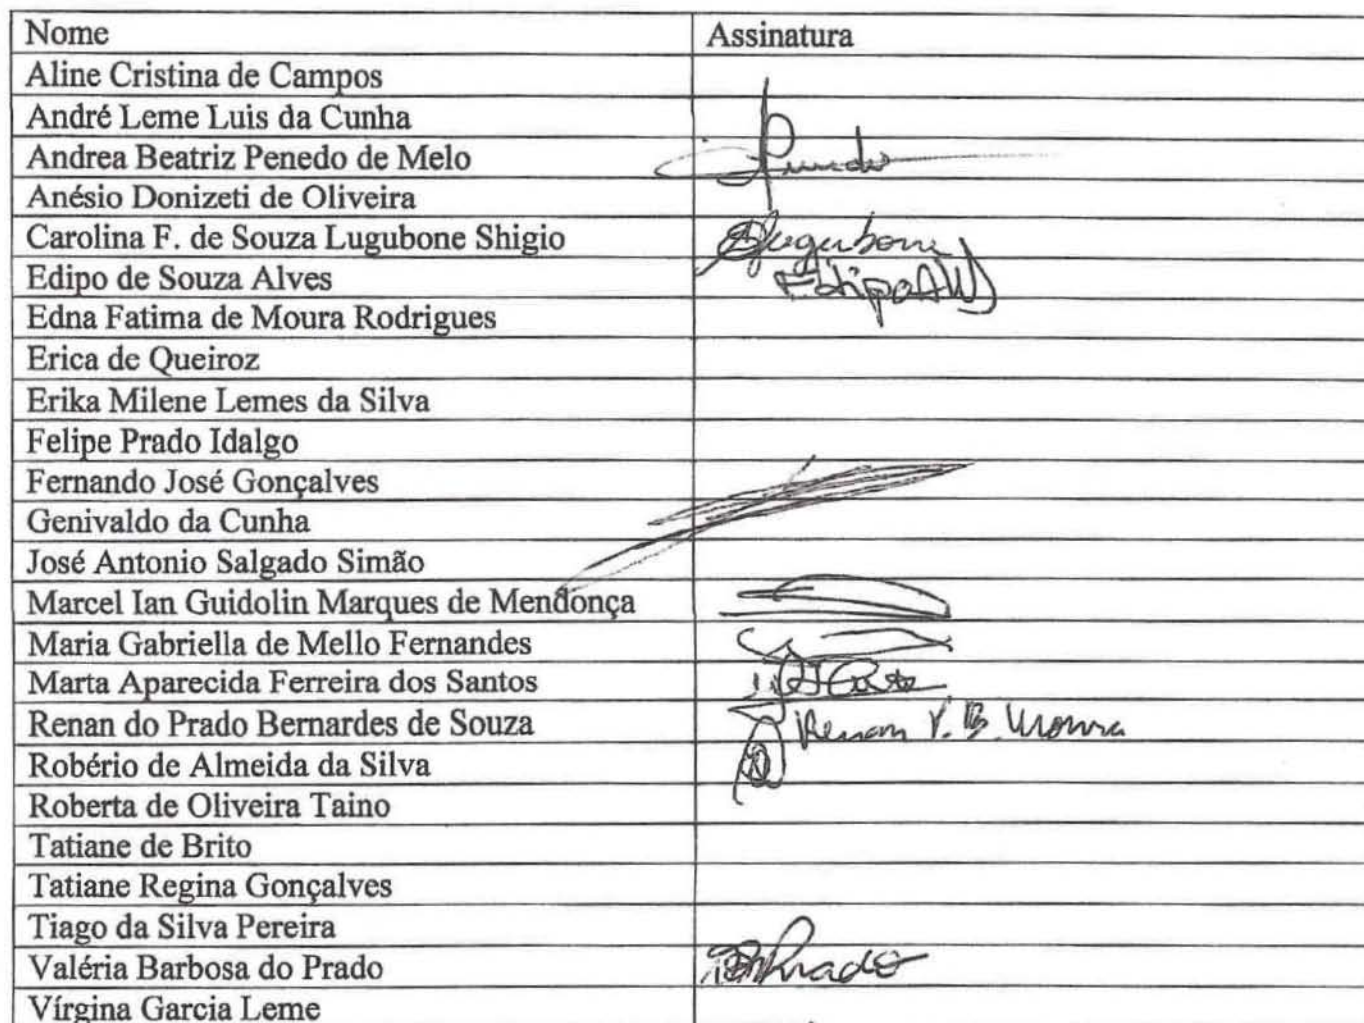 Nome Assinatura
Aline Cristina de Campos
André Leme Luis da Cunha
Andrea Beatriz Penedo de Melo
Anésio Donizeti de Oliveira
Carolina F. de Souza Lugubone Shigio Lugubone
Edipo de Souza Alves Edipo
Edna Fatima de Moura Rodrigues
Erica de Queiroz
Erika Milene Lemes da Silva
Felipe Prado Idalgo
Fernando José Gonçalves
Genivaldo da Cunha
José Antonio Salgado Simão
Marcel Ian Guidolin Marques de Mendonça
Maria Gabriella de Mello Fernandes
Marta Aparecida Ferreira dos Santos
Renan do Prado Bernardes de Souza Renan P. B.
Robério de Almeida da Silva
Roberta de Oliveira Taino
Tatiane de Brito
Tatiane Regina Gonçalves
Tiago da Silva Pereira
Valéria Barbosa do Prado Prado
Vírgina Garcia Leme